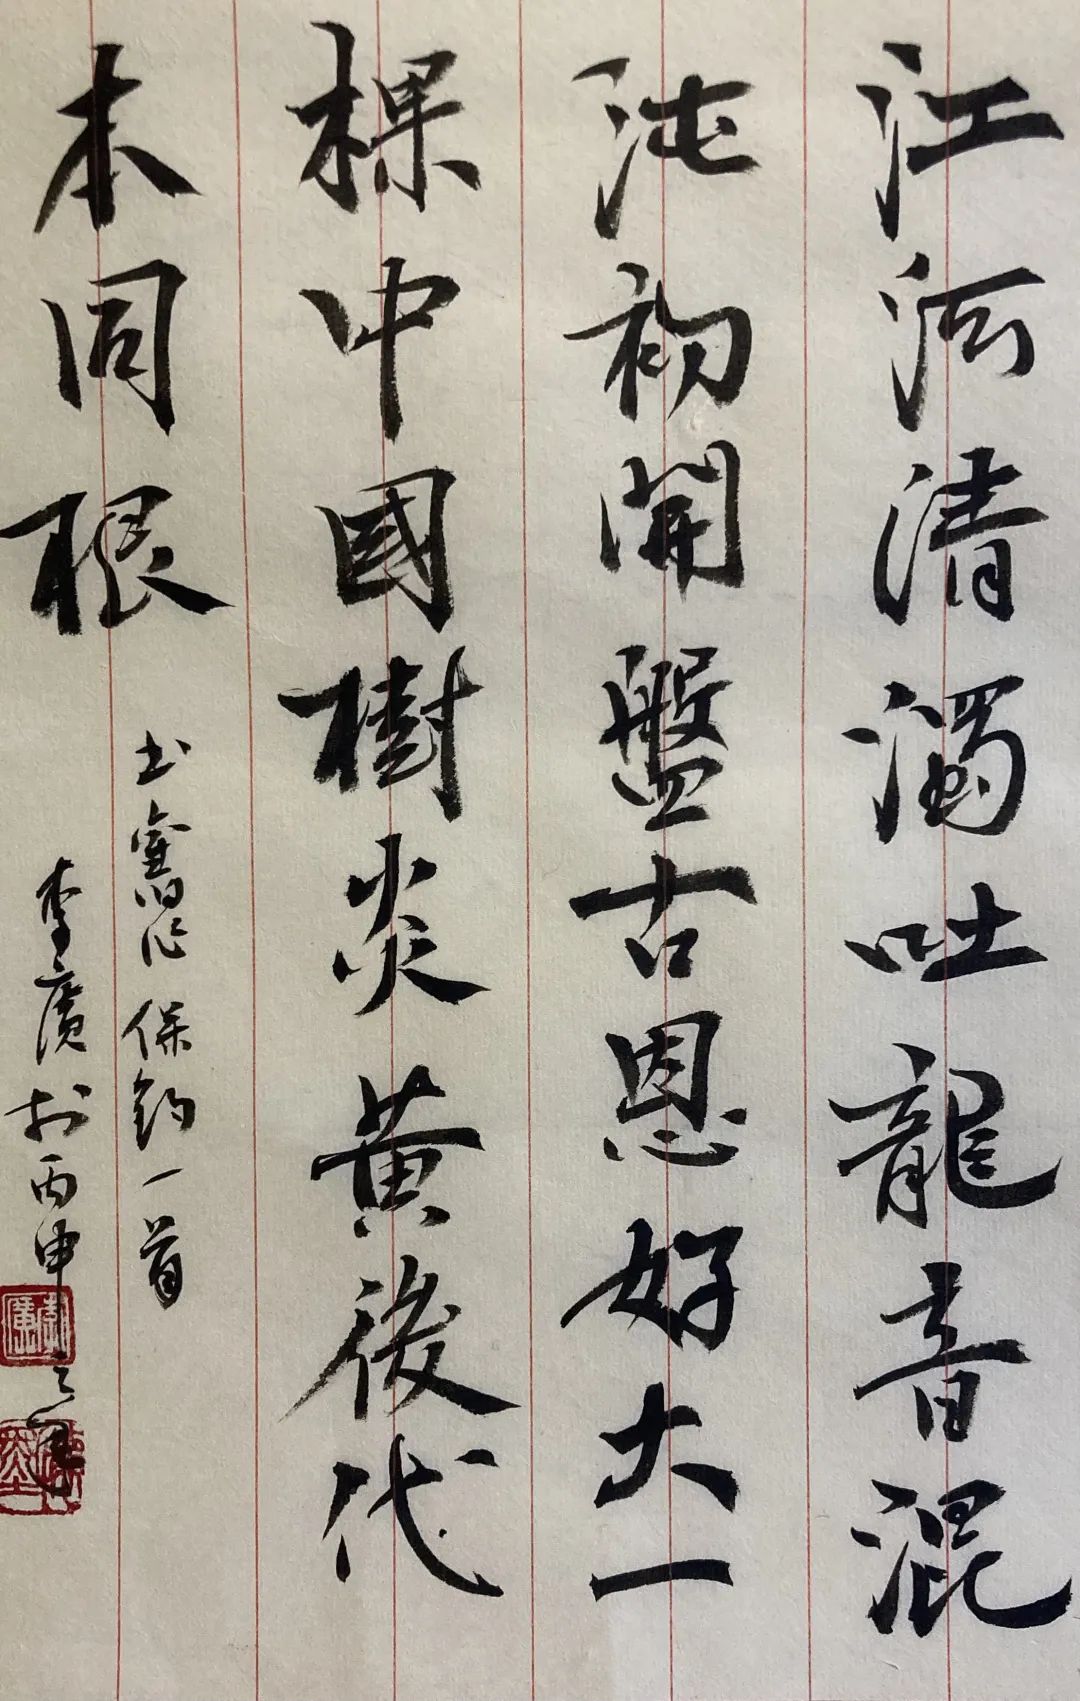 江河清濁吐龍音混
沌初開盤古恩好大一
棵中國樹炎黃後代
本同根
書舊作保釣一首
李廣於丙申之年
李廣